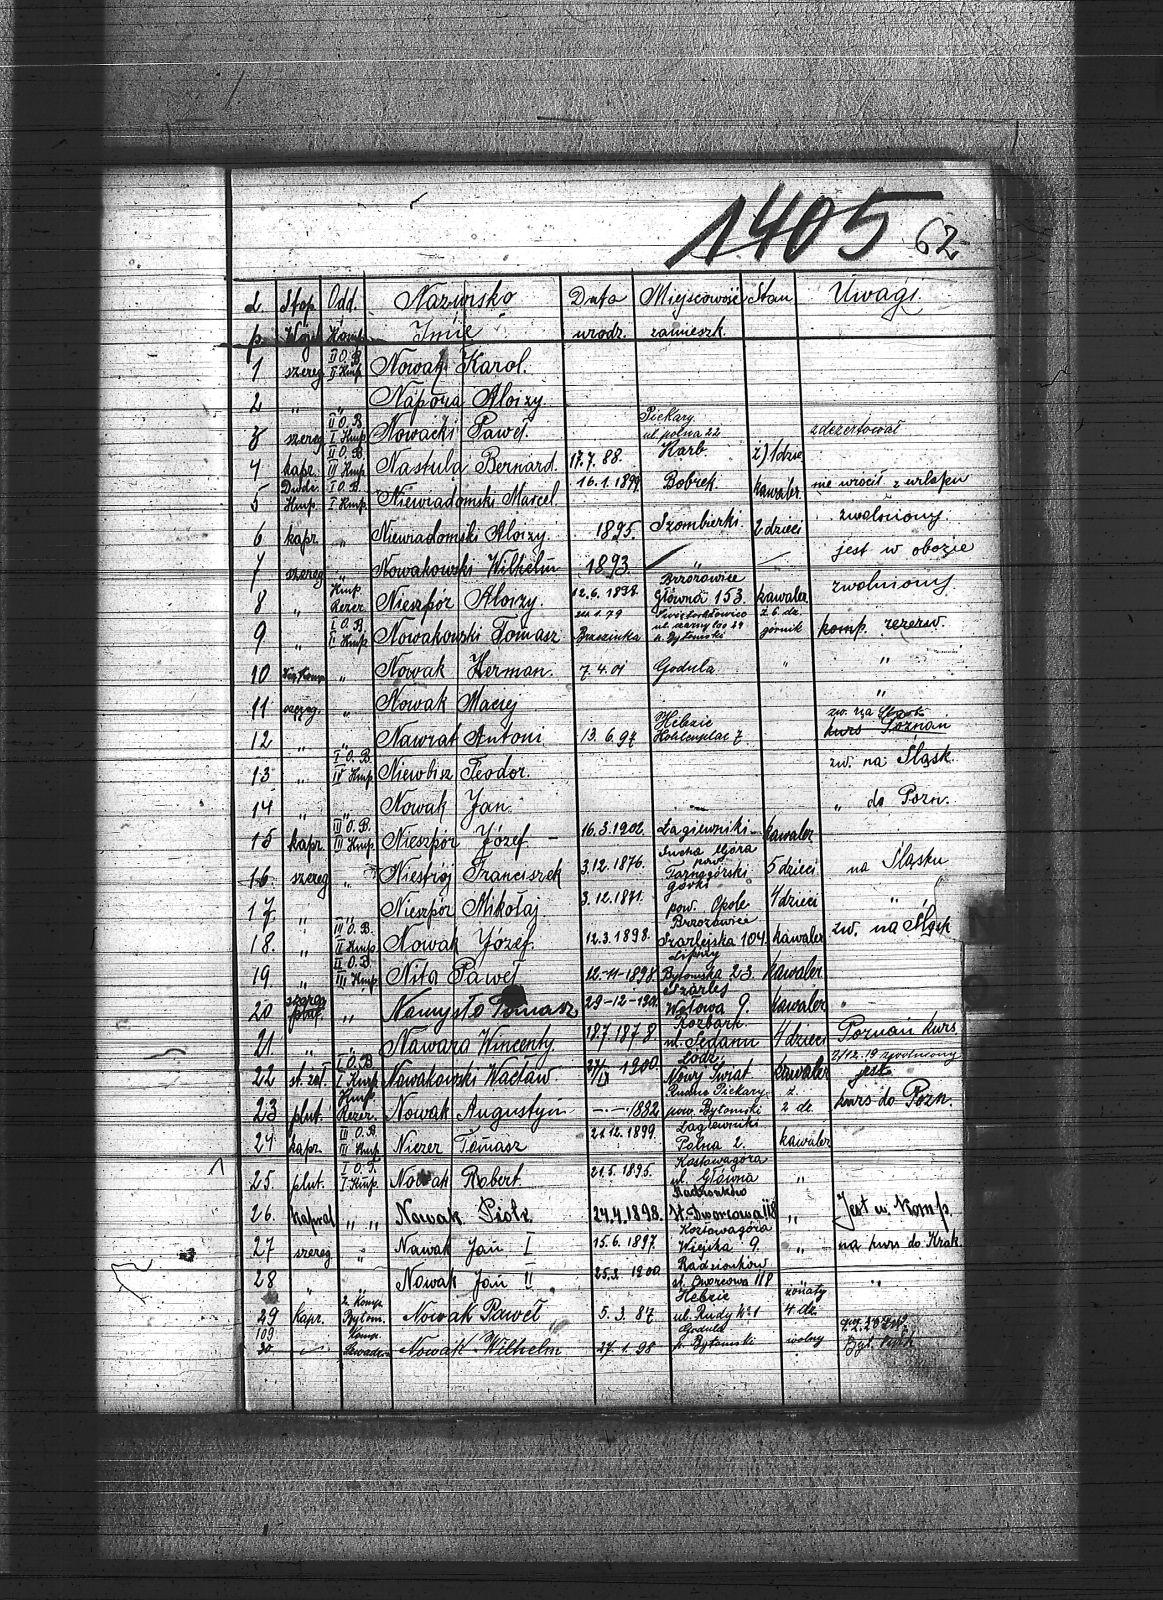 1405 62
L. Stop. Odd. Nazwisko Data Miejscowość Stan Uwagi
p. Wojsk Komp. Imię urodz. zamieszk.
1 szereg II O.B. II Kmp. Nowak Karol.
2 " " Napora Aloizy.
3 szereg II O.B. I Kmp. Nowacki Paweł. Piekary ul. polna 22 zdezertował
4 kapr. II O.B. III Kmp. Nastula Bernard. 17.7.88 Karb ż) 1 dzie
5 Kmp. I O.B. I Kmp. Niewiadomski Marcel 16.1.1899 Bobrek. kawaler. nie wrócił z urlopu
6 kapr. " Niewiadomski Aloizy. 1895. Szombierki. 2 dzieci zwolniony.
7 szereg " Nowakowski Wilhelm 1893. " jest w obozie
8 " Kmp. Rezer. Nieszpór Aloizy. 12.6.1898. Brzozowice Główna 153. kawaler zwolniony.
9 " I O.B. I Kmp. Nowakowski Tomasz Brzezinka Świętochłowice p. Bytomski ż. 6. dz. górnik komp. rezerw.
10 " Nowak Herman. 7.4.01 Godula " "
11 szereg. " Nowak Maciej "
12 " " Nawrat Antoni 13.6.97 Hebzie Kohlenplac 7. kurs Poznań
13 " I O.B. IV Kmp. Teodor. zw. na Śląsk.
14 " " Nowak Jan. " do Pozn.
15 kapr. III O.B. III Kmp. Nieszpór Józef 16.3.1902. Łagiewniki kawaler
16. szereg " Niestrój Franciszek 3.12.1876. Sucha Góra pow. Tarnogórski 5 dzieci na Śląsku
17 " " Nieszpór Mikołaj 3.12.1871. górki pow. Opole 4 dzieci "
18. " III O.B. II Kmp. Nowak Józef. 12.3.1898. Brzozowice Szarlejska 104. kawaler zw. na Śląsk
19. " II O.B. III Kmp. Nita Paweł 12-11-1898 Lipiny Bytomska 23. kawaler
20 szereg " Namysło Tomasz 29-12-1901 Szarlej Wałowa 9. kawaler "
21. " " Nawara Wincenty 18.7.1878. Rozbark ul. Sedanu 4 dzieci Poznań kurs.
22 I O.B. I Kmp. Nowakowski Wacław 1900. Łódź Nowy Świat kawaler 2/12.19 zwolniony jest
23 plut. Kmp. Rezer. Nowak Augustyn — — 1882 Rudne Piekary pow. Bytomski ż. 2 dz. kurs do Pozn.
24 kapr. III O.B. III Kmp. Niezer Tomasz 21.12.1899. Łagiewniki Polna 2. kawaler
25 plut. I O.B. I Kmp. Nowak Robert. 21.5.1895. Kozłowagóra ul. Główna "
26. kapral " " Nowak Piotr. 24.4.1898. Radzionków st. Dworcowa 118 " Jest w Komp.
27 szereg " Nowak Jan I 15.6.1897. Kozłowagóra Wiejska 9. " na kurs do Krak.
28 " Nowak Jan II " 25.2.1900. Radzionków st. Dworcowa 118 "
29 kapr. 2. Komp. Bytom. Nowak Paweł 5.3.87 Hebzie ul. Rudy № 1 żonaty 4 dz.
109
30 Komp. Nowak Wilhelm 27.1.98 Godula p. Bytomski wolny